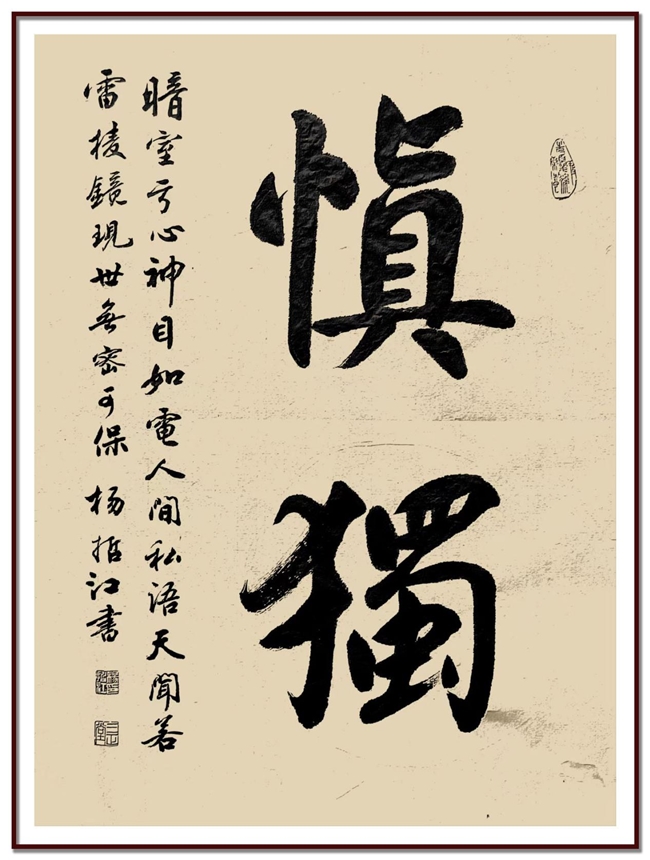 慎獨
暗室亏心神目如電人間私語天聞若
雷棱鏡現世無密可保 杨 江書